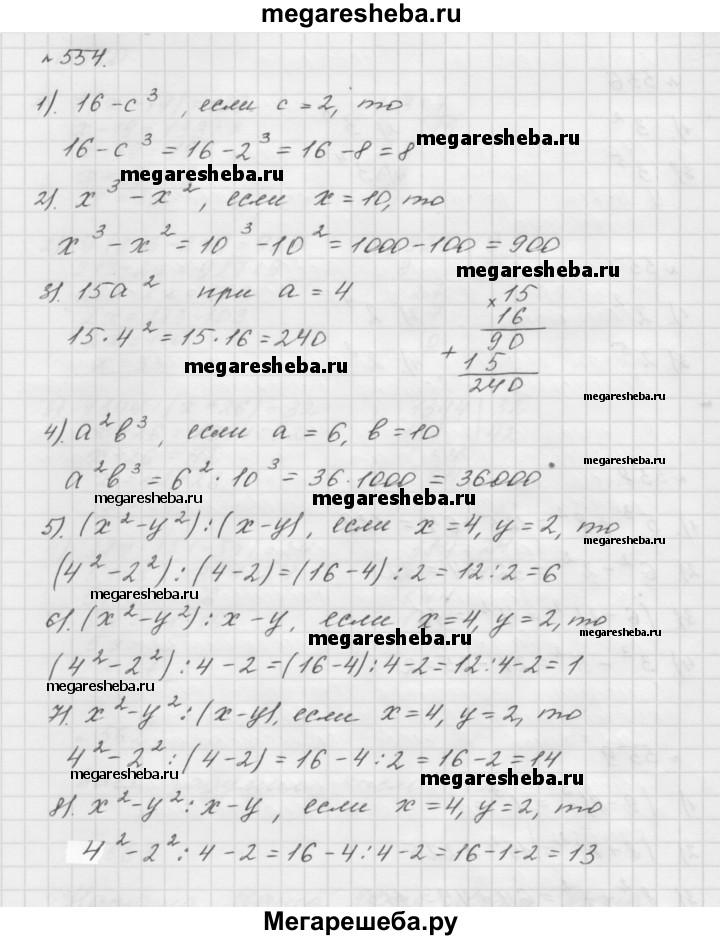 megaresheba.ru
№ 554.
1). 16 - c³, если c = 2, то
16 - c³ = 16 - 2³ = 16 - 8 = 8
megaresheba.ru
megaresheba.ru
2). x³ - x², если x = 10, то
x³ - x² = 10³ - 10² = 1000 - 100 = 900
megaresheba.ru
3). 15a² при a = 4
15 · 4² = 15 · 16 = 240
× 15
16
90
+ 15
240
megaresheba.ru
megaresheba.ru
4). a²b³, если a = 6, b = 10
megaresheba.ru
a²b³ = 6² · 10³ = 36 · 1000 = 36000
megaresheba.ru
megaresheba.ru
5). (x² - y²) : (x - y), если x = 4, y = 2, то
megaresheba.ru
(4² - 2²) : (4 - 2) = (16 - 4) : 2 = 12 : 2 = 6
megaresheba.ru
6). (x² - y²) : x - y, если x = 4, y = 2, то
megaresheba.ru
megaresheba.ru
(4² - 2²) : 4 - 2 = (16 - 4) : 4 - 2 = 12 : 4 - 2 = 1
megaresheba.ru
7). x² - y² : (x - y), если x = 4, y = 2, то
4² - 2² : (4 - 2) = 16 - 4 : 2 = 16 - 2 = 14
megaresheba.ru
megaresheba.ru
8). x² - y² : x - y, если x = 4, y = 2, то
4² - 2² : 4 - 2 = 16 - 4 : 4 - 2 = 16 - 1 - 2 = 13
Мегарешеба.ру